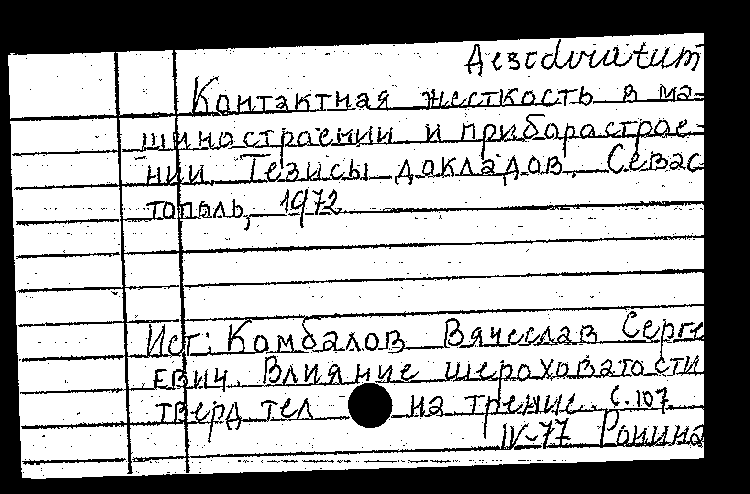 Desiduratum
Контактная жесткость в ма-
шиностроении и приборастрое-
нии. Тезисы докладов. Севас
тополь, 1972
Ист: Комбалов Вячеслав Серге
евич. Влияние шероховатости
тверд тел на трение. с. 107
IV-77 Ронина